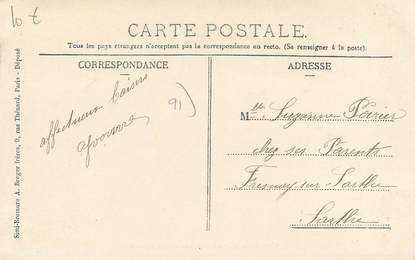 10 €
CARTE POSTALE.
Tous les pays étrangers n'acceptent pas la correspondance au recto. (Se renseigner à la poste).
CORRESPONDANCE
affectueux baisers
Yvonne
91)
ADRESSE
Mlle Suzanne Poirier
chez ses Parents
Fresnay-sur-Sarthe
Sarthe
Simi-Bromure A. Breger frères, 9, rue Thénard, Paris - Déposé